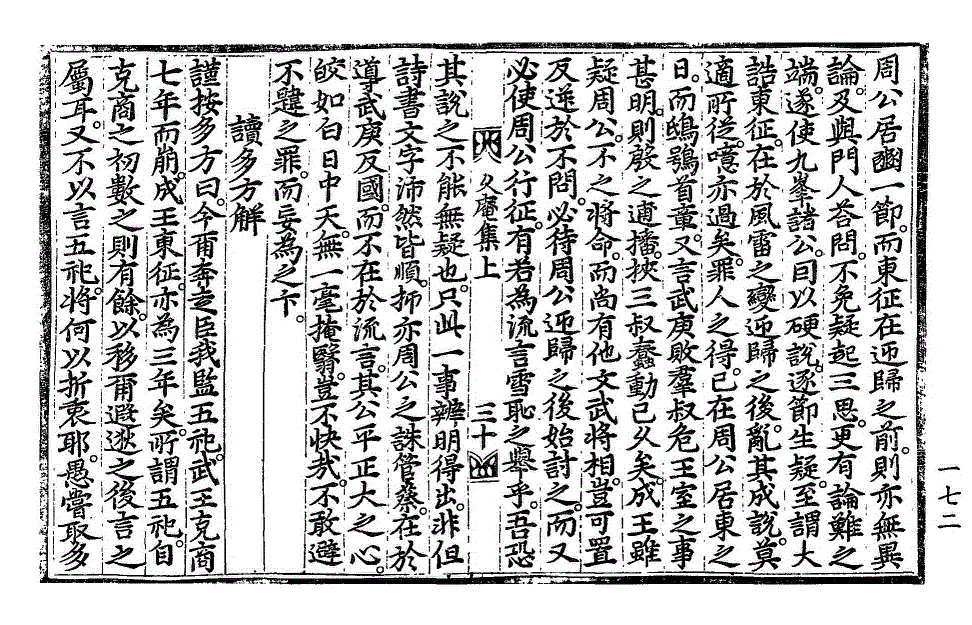 周公居豳一節。而東征在迎歸之前。則亦無異
論。及與門人荅問。不免疑起三思。更有論難之
端。遂使九峯諸公。囘以硬說。逐節生疑。至謂大
誥東征。在於風雷之變迎歸之後。亂其成說。莫
適所從。噫亦過矣。罪人之得。已在周公居東之
日。而鴟鴞首章。又言武庚敗羣叔危王室之事
甚明。則殷之逋播。挾三叔蠢動已久矣。成王雖
疑周公。不之將命。而尚有他文武將相。豈可置
反逆於不問。必待周公迎歸之後始討之。而又
必使周公行征。有若為流言雪恥之擧乎。吾恐
久庵集上 三十
其說之不能無疑也。只此一事辨明得出。非但
詩書文字沛然皆順。抑亦周公之誅管蔡。在於
導武庚反國。而不在於流言。其公平正大之心。
皎如白日中天。無一毫掩翳。豈不快哉。不敢避
不韙之罪。而妄為之下。
讀多方解
謹按多方曰。今爾奔走臣我監五祀。武王克商
七年而崩。成王東征。亦為三年矣。所謂五祀。自
克商之初數之則有餘。以移爾遐逖之後言之
屬耳。又不以言五祀。將何以折衷耶。愚嘗取多
一七二